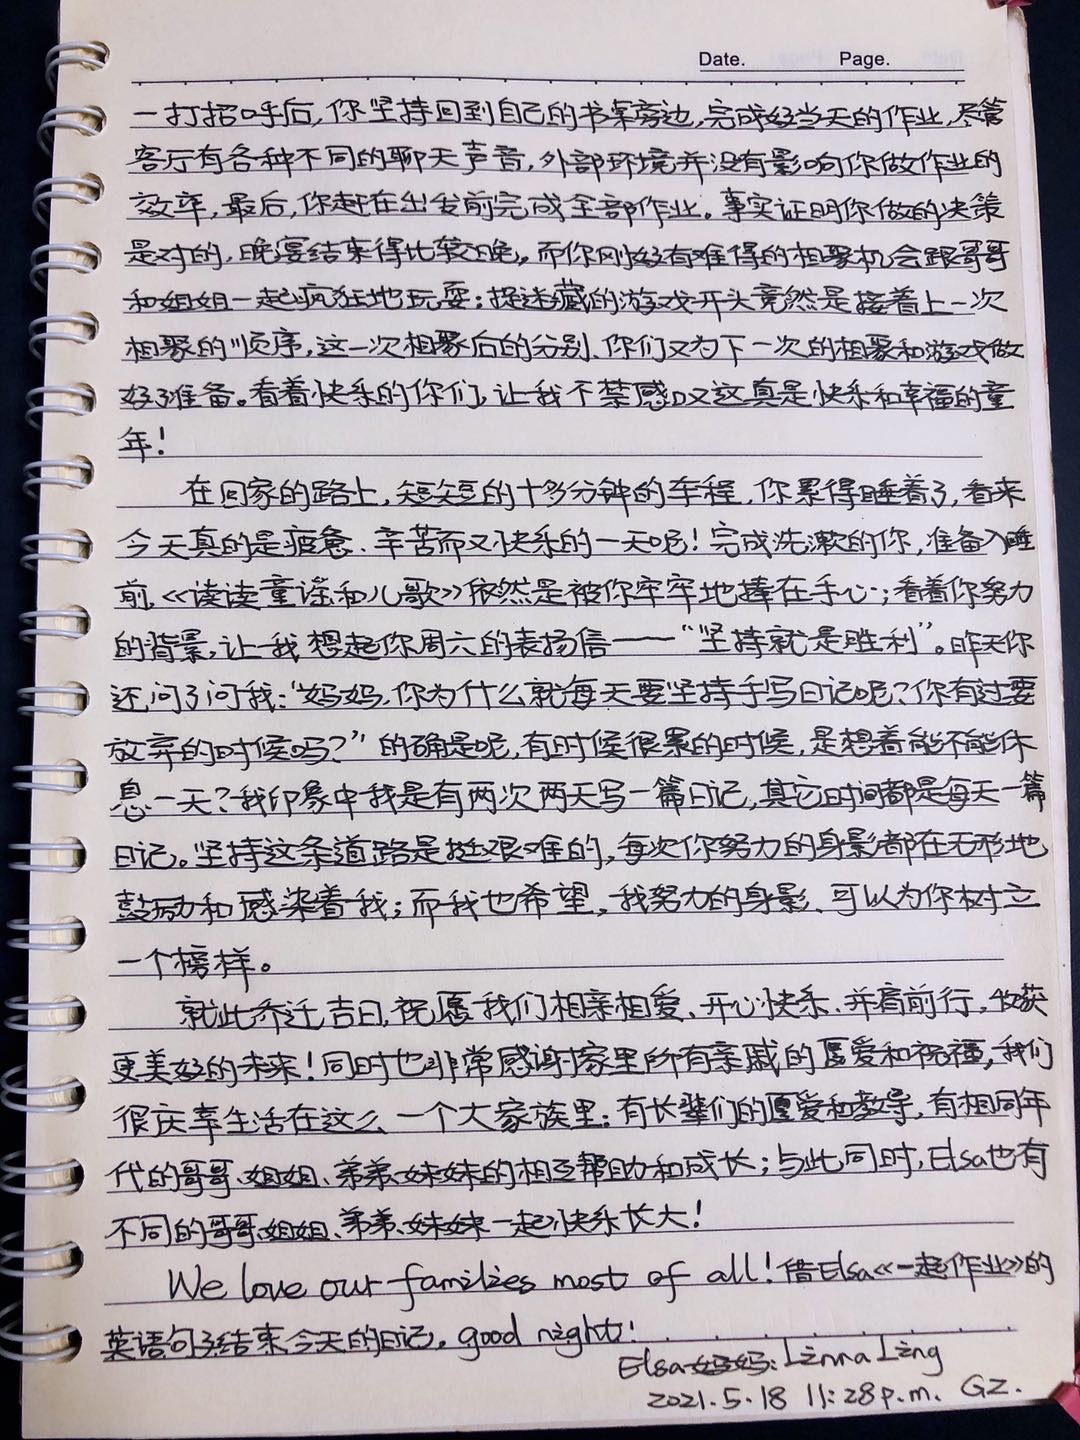 Date. Page.
一打招呼后,你坚持回到自己的书案旁边,完成好当天的作业,尽管
客厅有各种不同的聊天声音,外部环境并没有影响你做作业的
效率,最后,你赶在出发前完成全部作业。事实证明你做的决策
是对的,晚宴结束得比较晚。而你刚好有难得的相聚机会跟哥哥
和姐姐一起疯狂地玩耍;捉迷藏的游戏开头竟然是接着上一次
相聚的顺序,这一次相聚后的分别、你们又为下一次的相聚和游戏做
好了准备。看着快乐的你们,让我不禁感叹这真是快乐和幸福的童
年!
在回家的路上,短短的十多分钟的车程,你累得睡着了,看来
今天真的是疲惫、辛苦而又快乐的一天呢!完成洗漱的你,准备入睡
前,《读读童谣和儿歌》依然是被你牢牢地捧在手心;看着你努力
的背景,让我想起你周六的表扬信——“坚持就是胜利”。昨天你
还问了问我:“妈妈,你为什么就每天要坚持手写日记呢?你有过要
放弃的时候吗?”的确是呢,有时候很累的时候,是想着能不能休
息一天?我印象中我是有两次两天写一篇日记,其它时间都是每天一篇
日记。坚持这条道路是挺艰难的,每次你努力的身影都在无形地
鼓励和感染着我;而我也希望,我努力的身影、可以为你树立
一个榜样。
就此乔迁吉日,祝愿我们相亲相爱、开心快乐、并肩前行,收获
更美好的未来!同时也非常感谢家里所有亲戚的厚爱和祝福,我们
很庆幸生活在这么一个大家族里:有长辈们的厚爱和教导,有相同年
代的哥哥、姐姐、弟弟、妹妹的相互帮助和成长;与此同时,Elsa也有
不同的哥哥、姐姐、弟弟、妹妹一起快乐长大!
We love our families most of all!借Elsa《一起作业》的
英语句子结束今天的日记。good night!
Elsa妈妈:Linna Ling
2021.5.18 11:28p.m. GZ.